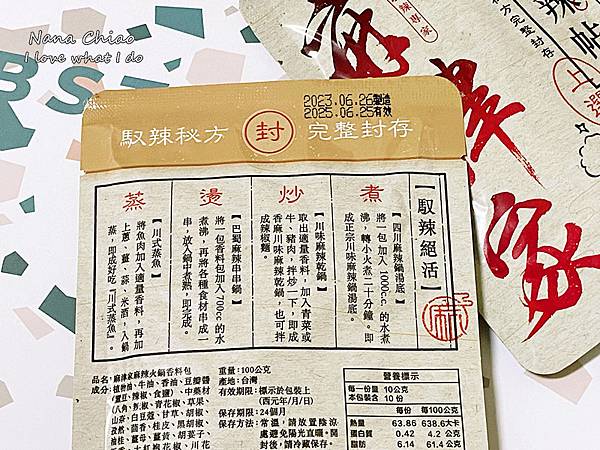 Nana Chiao
I love what I do
2023.06.26製造
2025.06.25有效
馭辣秘方 封 完整封存
馭辣絕活
煮
【四川麻辣鍋湯底】
將一包加入1000cc的水煮
沸,轉小火煮二十分鐘。即
成正宗川味麻辣鍋湯底。
炒
【川味麻辣乾鍋】
取出適量香料,加入青菜或
牛、豬肉,拌炒一下,即成
香麻川味麻辣乾鍋,也可拌
成辣椒麵。
燙
【巴蜀麻辣串串鍋】
將一包香料包加入700cc的水
煮沸,再將各種食材串成一
串,放入鍋中煮熟,即完成。
蒸
【川式蒸魚】
將魚肉加入適量香料,再加
上蔥、薑、蒜、米酒,入鍋
蒸,即成好吃「川式蒸魚」。
品名:麻津家麻辣火鍋香料包
成份:植物油、牛油、香油、豆瓣醬
(蠶豆、辣椒、食鹽)、中藥材
(八角、桂椒、青花椒、草果、
山奈、白豆蔻、甘草、胡椒、
孜然、茴香、桂皮、黑胡椒、
重量:100公克
產地:台灣
有效期限:標示於包裝上
(西元年/月/日)
保存期限:24個月
保存方法:常溫,請放置陰涼
處避免陽光直曬。開
封後,請冷藏保存。
營養標示
每一份量 10公克
本包裝含 10 份
每份 每100公克
熱量 63.86 638.6大卡
蛋白質 0.42 4.2 公克
脂肪 6.14 61.4公克